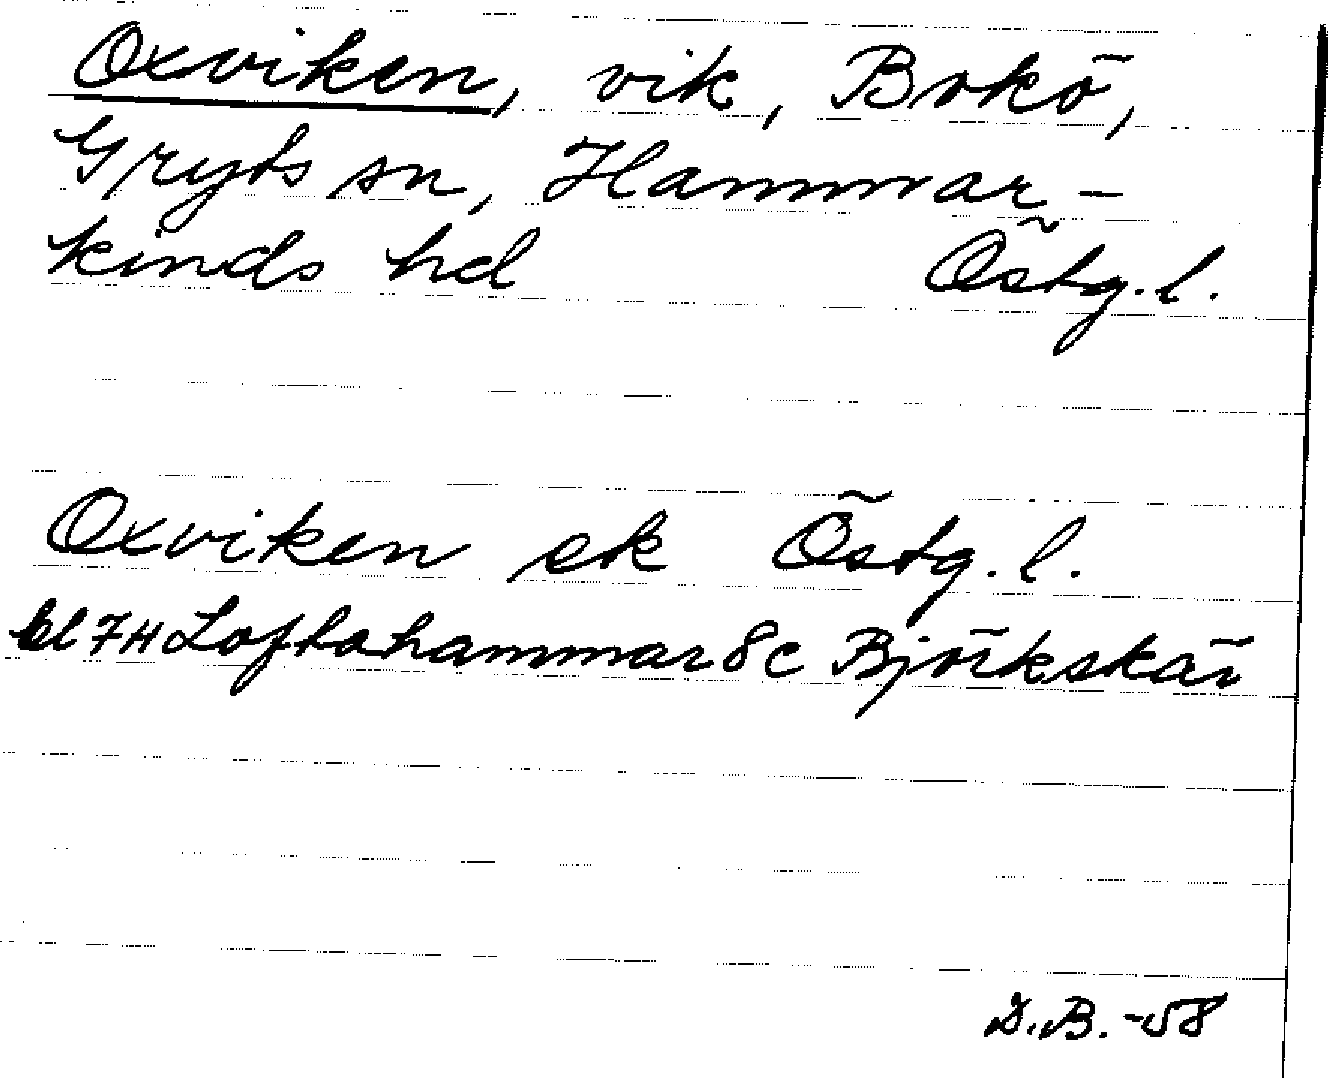 Oxviken, vik, Bokö,
Gryts sn, Hammar-
kinds hd Östg. l.
Oxviken ek Östg. l.
bl 7H Loftahammar 8c Björkskär
D.B. -58